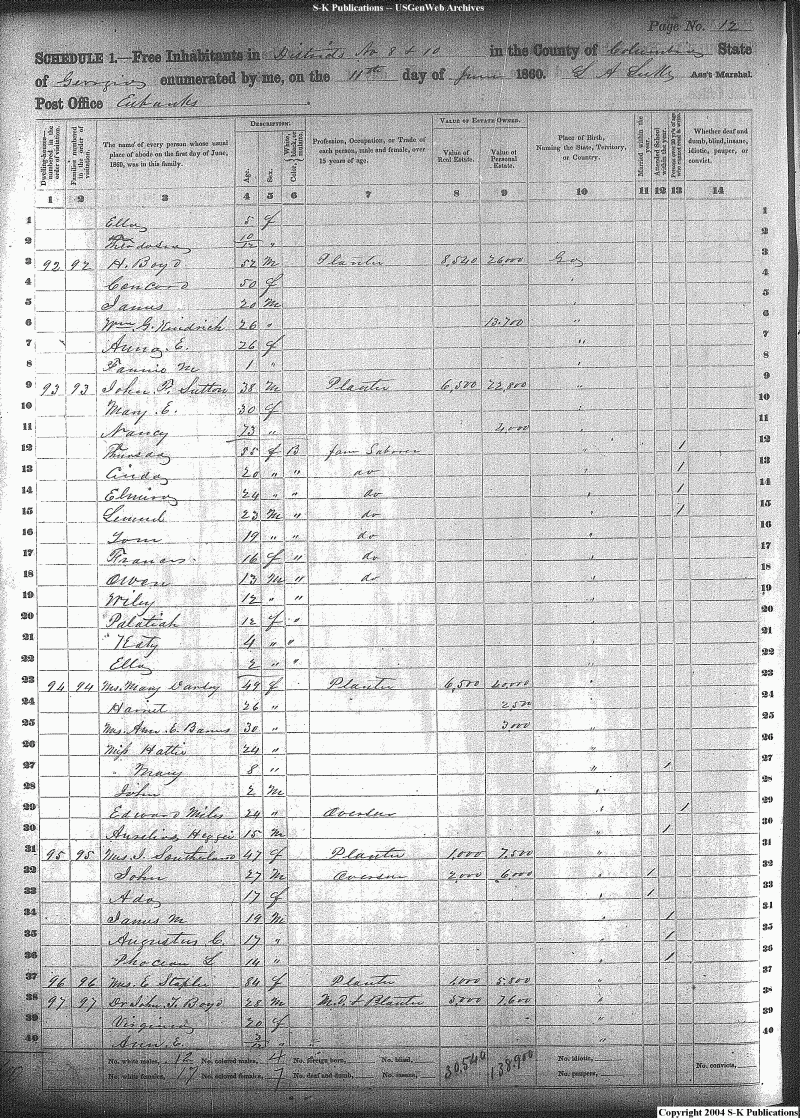 S-K Publications -- USGenWeb Archives
Page No. 12
SCHEDULE 1.—Free Inhabitants in Districts No 8 & 10 in the County of Columbia State
of Georgia enumerated by me, on the 11th day of June 1860. Ass't Marshal.
Post Office Eubanks
Dwelling-houses—numbered in the order of visitation.
Families numbered in the order of visitation.
The name of every person whose usual place of abode on the first day of June, 1860, was in this family.
DESCRIPTION.
Age.
Sex.
White, black, or mulatto.
Color,
Profession, Occupation, or Trade of each person, male and female, over 15 years of age.
VALUE OF ESTATE OWNED.
Value of Real Estate.
Value of Personal Estate.
Place of Birth, Naming the State, Territory, or Country.
Married within the year.
Attended School within the year.
Whether deaf and dumb, blind, insane, idiotic, pauper, or convict.
1 2 3 4 5 6 7 8 9 10 11 12 13 14
1 Ella 5 f 1
2 Theodosia 10/12 " 2
3 92 92 H. Boyd 52 M Planter 8,540 26000 Ga 3
4 Concord 50 f " 4
5 James 20 M " 5
6 Wm G. Kindrich 26 " 13.700 " 6
7 Anna E. 26 f " 7
8 Fannie M 1 " " 8
9 93 93 John P. Sutton 38 M Planter 6,500 22,800 "
10 Mary E. 30 f " 10
11 Nancy 73 " 2,000 " 11
12 Thursday 35 f B farm Laborer " 1 12
13 Cinda 20 " " do " 1 13
14 Elmira 24 " " do " 1 14
15 Lemuel 23 M " do " 1 15
16 Tom 19 " " do " 16
17 Francis 16 f " do " 17
18 Owen 13 M " do " 18
19 Wiley 12 " " 19
20 Palatiah 12 f " 20
21 Katy 4 " " " 21
22 Ella 2 " " " 22
23 94 94 Mrs. Mary Danby 49 f Planter 6,500 20,000 " 23
24 Harriet 26 " 2500 " 24
25 Mrs. Ann E. Barnes 30 " 3000 " 25
26 Miss Hattie 24 " " 26
27 " Mary 8 " " 1 27
28 John 2 M " 28
29 Edward Miles 24 " Overseer " 1 29
30 Aurelius Heggie 15 M " 1 30
31 95 95 Mrs. J. Southerland 47 f Planter 1,000 7,500 " 31
32 John 27 M Overseer 2,000 6,000 " 1 32
33 Ada 17 f " 1 33
34 James M 19 M " 1 34
35 Augustus C. 17 " " 1 35
36 Phocean L. 14 " " 1 36
37 96 96 Mrs. E Stapler 84 f Planter 1000 5,800 " 37
38 97 97 Dr John T. Boyd 28 M M.D. & Planter 3,000 7,600 " 38
39 Virginia 20 f " 39
40 Ann. E. " 40
No. white males, 12 No. colored males, 4 No. foreign born, No. blind, 30,540 138,900 No. idiotic,
No. white females, 17 No. colored females, 7 No. deaf and dumb, No. insane, No. paupers, No. convicts,
Copyright 2004 S-K Publications